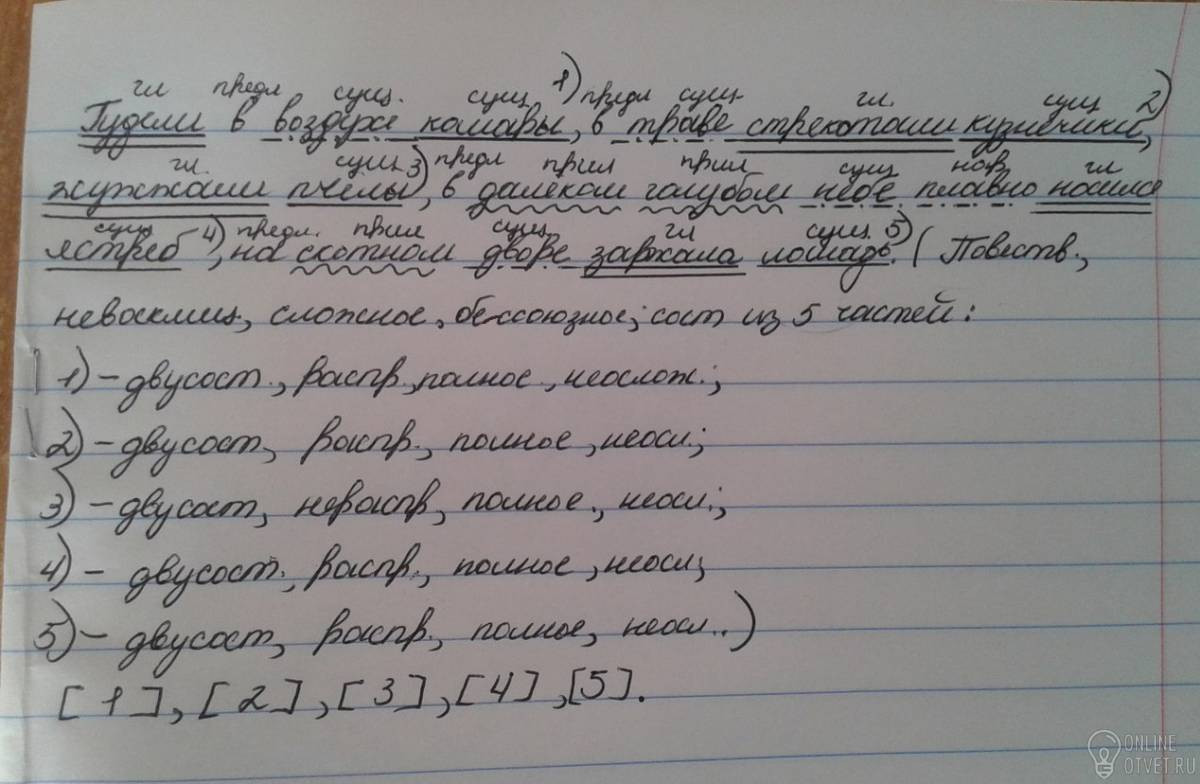 гл предл сущ. сущ 1) предл сущ гл. сущ 2)
Гудели в воздухе комары, в траве стрекотали кузнечики,
гл. сущ 3) предл прил прил сущ нар. гл
жужжали пчелы, в далеком голубом небе плавно носился
сущ 4) предл. прил сущ гл сущ. 5)
ястреб, на скотном дворе заржала лошадь. (Повеств.,
невосклиц, сложное, бессоюзное; сост из 5 частей:
1) – двусост., распр, полное, неослож.;
2) – двусост, распр., полное, неосл.;
3) – двусост, нераспр, полное., неосл.;
4) – двусост., распр., полное, неосл;
5) – двусост, распр., полное, неосл..)
[1], [2], [3], [4], [5].
ONLINE
OTVET.RU